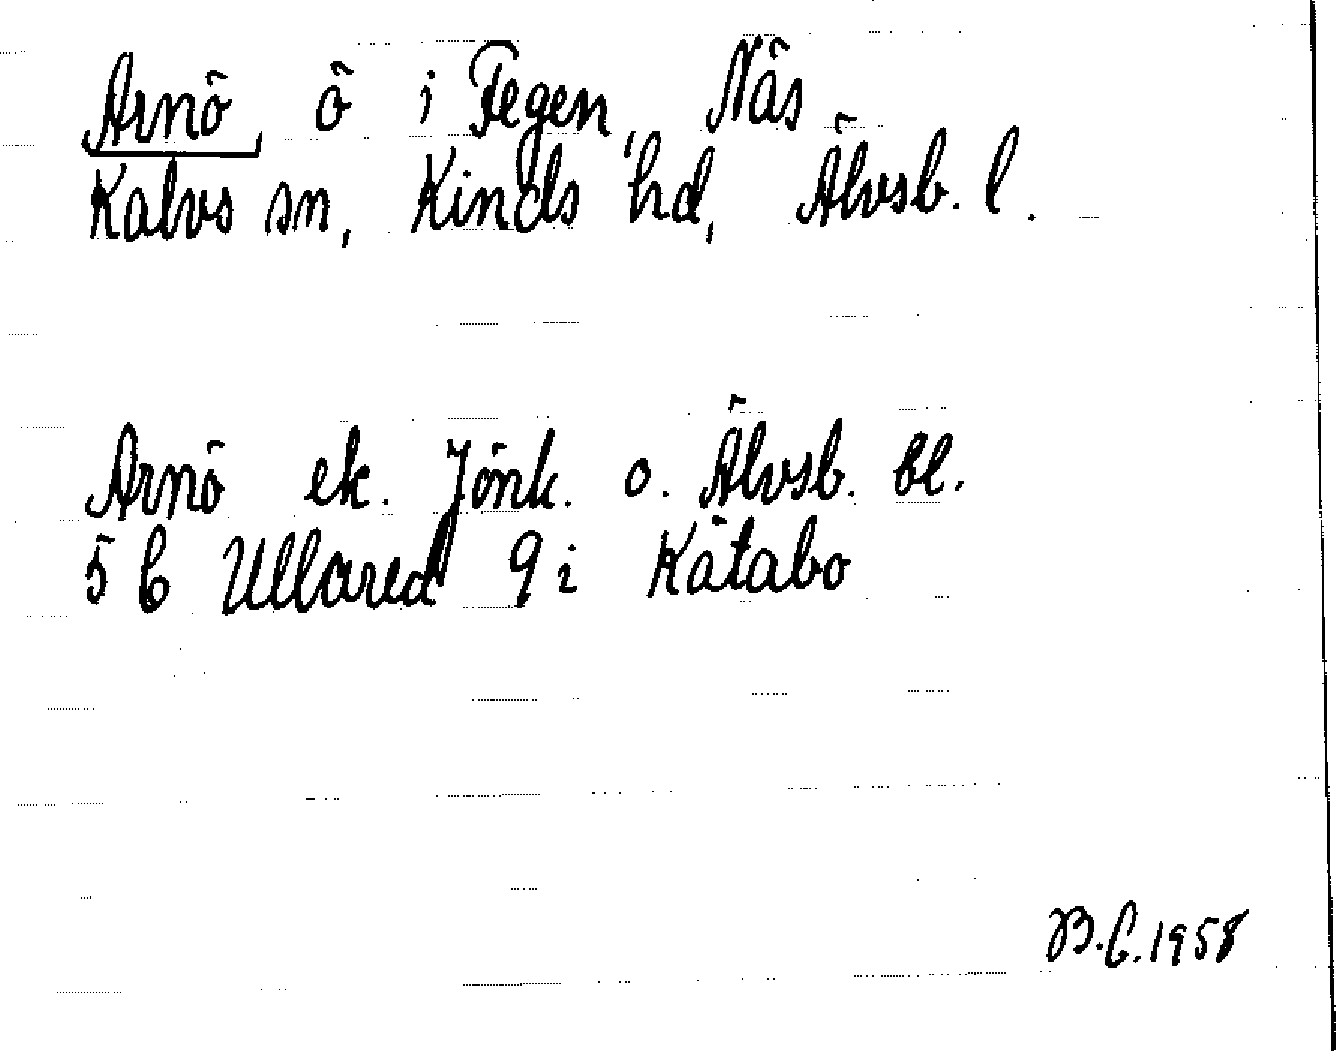 Arnö, ö i Fegen, Näs
Kalvs sn, Kinds hd, Älvsb. l.
Arnö ek. Jönk. o. Älvsb. bl.
5 C Ullared 9 i Kätabo
B.C. 1958